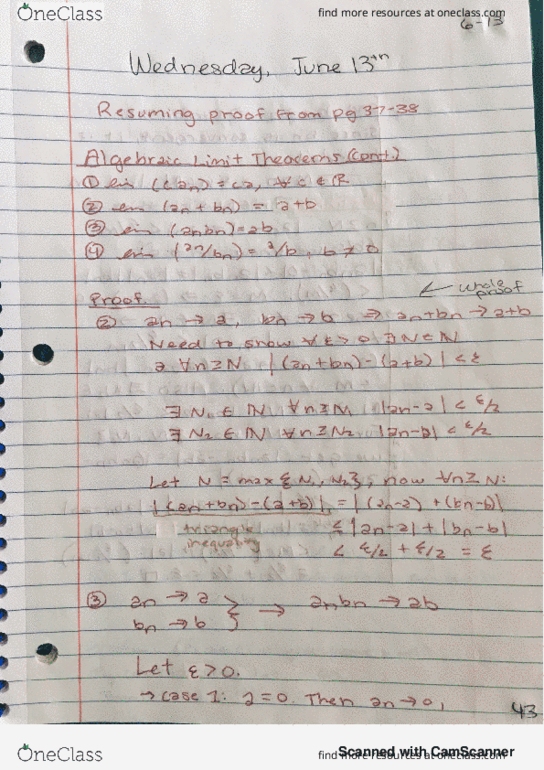 OneClass
find more resources at oneclass.com
6-13
Wednesday, June 13th
Resuming proof from pg 37-38
Algebraic Limit Theoderns (cont.)
① lim (c an) = ca, ∀ c ∈ ℝ
② lim (an + bn) = a+b
③ lim (anbn) = ab
④ lim (an/bn) = a/b, b ≠ 0
Proof
← whole proof
② an → a, bn → b ⇒ an+bn → a+b
Need to show ∀ ε > 0 ∃ N ∈ ℕ
∋ ∀n≥N |(an+bn)-(a+b)| < ε
∃ N1 ∈ ℕ ∀n≥N1 |an-a| < ε/2
∃ N2 ∈ ℕ ∀n≥N2 |an-a| < ε/2
Let N = max {N1, N2}, now ∀n≥N:
|(an+bn)-(a+b)| = |(an-a) + (bn-b)|
triangle inequality
≤ |an-a| + |bn-b|
< ε/2 + ε/2 = ε
③ an → a } → anbn → ab
bn → b
Let ε>0.
→ case 1: a=0. Then an→0,
43
OneClass
find more resources at oneclass.com
Scanned with CamScanner